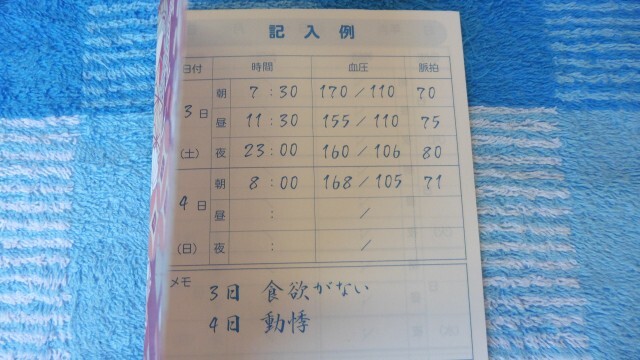 記入例
日付 時間 血圧 脈拍
朝 7:30 170/110 70
3日 昼 11:30 155/110 75
(土) 夜 23:00 160/106 80
朝 8:00 168/105 71
4日 昼 : /
(日) 夜 : /
メモ
3日 食欲がない
4日 動悸